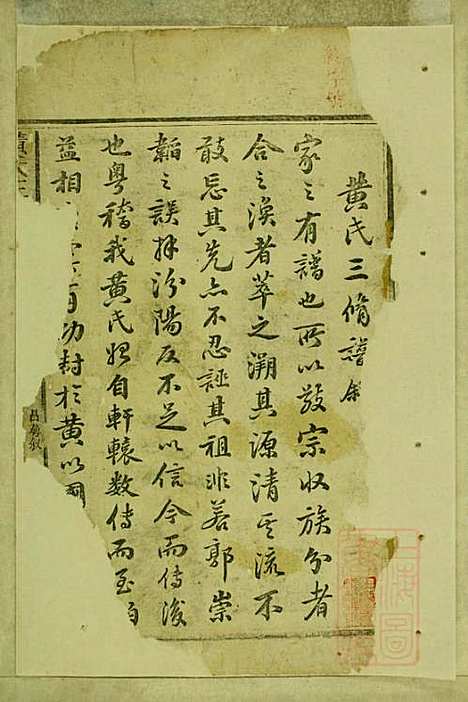 黄氏三脩譜叙
家之有譜也所以敬宗收族分者
合之渙者萃之溯其源清其流不
敢忘其先亦不忍誣其祖非若郭崇
韜之誤拜汾陽反不足以信今而傳後
也粤稽我黄氏始自軒轅数傳而至伯
益相 有功封於黄以國
上海圖